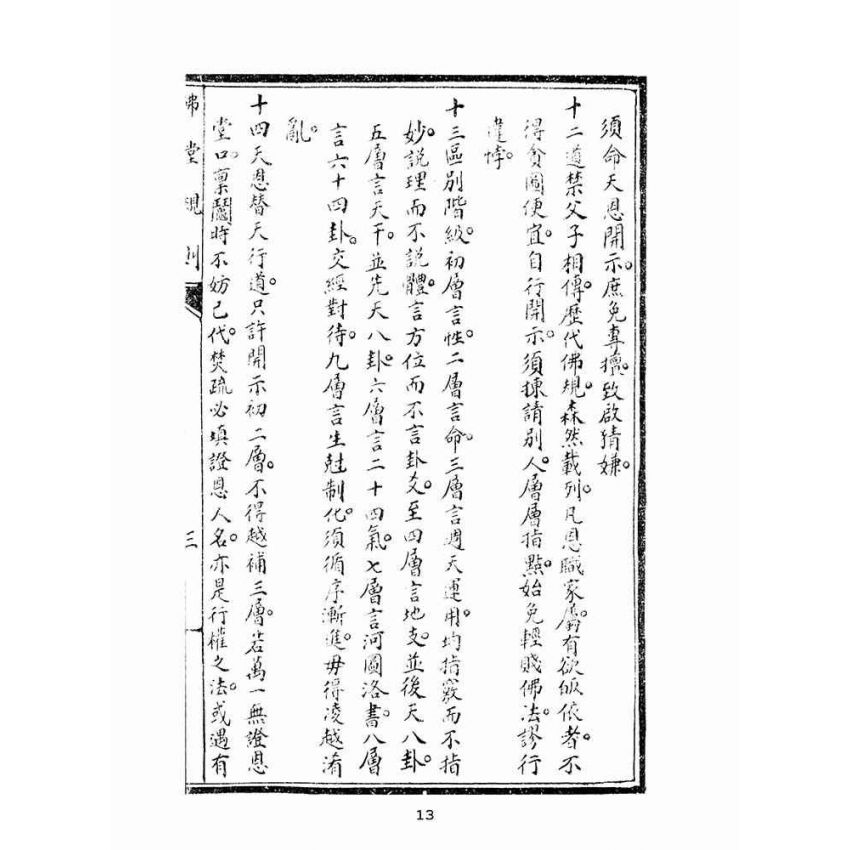 須命天恩開示。庶免專擅。致啟猜嫌。
十二道禁父子相傳。歷代佛規。森然載列。凡恩職家屬。有欲皈依者。不
得貪圖便宜。自行開示。須揀請別人。層層指點。始免輕賤佛法。謬行
違悖。
十三區別階級。初層言性。二層言命。三層言週天運用。均指竅而不指
妙。說理而不說體。言方位而不言卦爻。至四層言地支。並後天八卦。
五層言天干。並先天八卦。六層言二十四氣。七層言河圖洛書。八層
言六十四卦。交經對待。九層言生尅制化。須循序漸進。毋得凌越淆
亂。
十四天恩替天行道。只許開示初二層。不得越補三層。若萬一無證恩
堂口。稟鬮時不妨己代。焚疏必填證恩人名。亦是行權之法。或遇有
佛堂規則
三
13